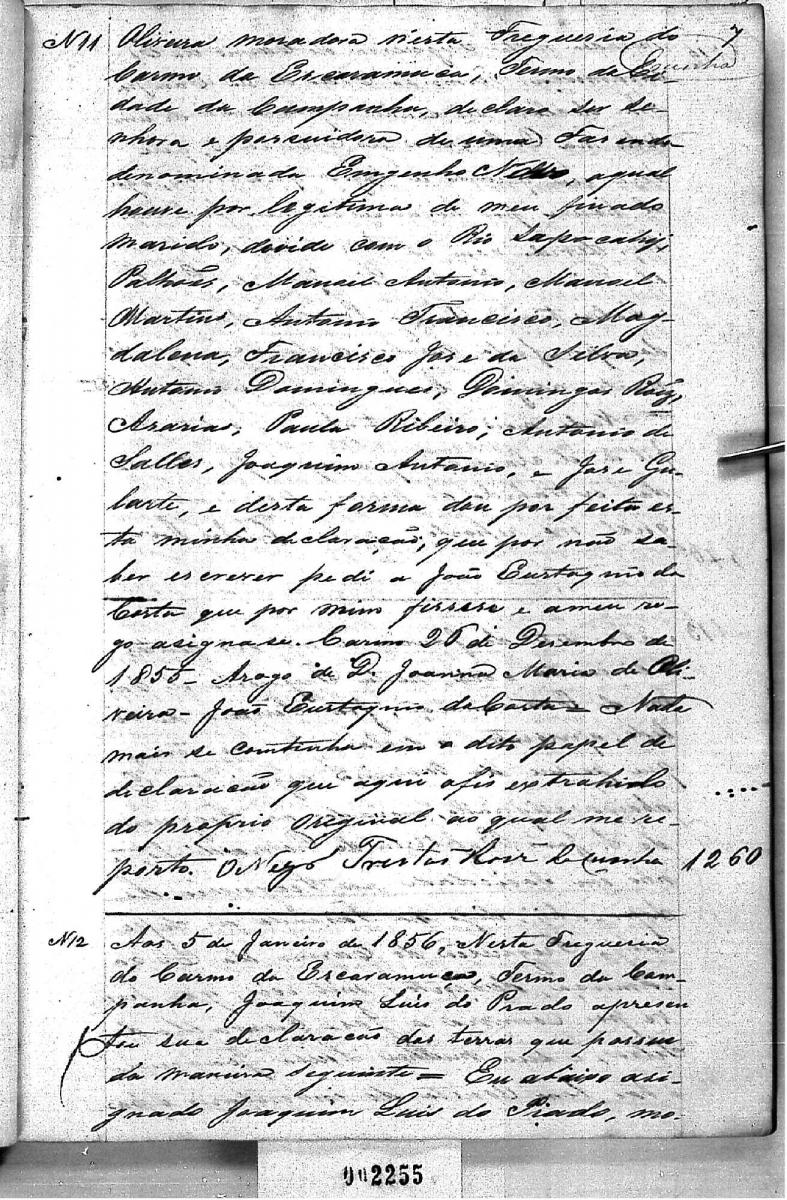 7
Cunha
N11 Oliveira moradora n'esta Freguesia do
Carmo da Escaramuca, Termo da Ci-
dade da Campanha, declara ser se-
nhora e possuidora de uma Fasenda
denominada Emgenho, aqual
houve por legitima de meu finado
marido, devide com o Rio Sapocahy,
Palhões, Manoel Antonio, Manoel
Martins, Antonio Francisco, Mag-
dalena, Francisco Jose da Silva,
Antonio Domingues, Domingos Roiz,
Asarias, Paula Ribeiro, Antonio de
Salles, Joaquim Antonio, e Jose Gu-
larte, e desta forma dou por feita es-
ta minha declaração, que por não sa-
ber escrever pedi a João Eustaquio da
Costa que por mim fissese e ameu ro-
go asignase. Carmo 26 de Desembro de
1855 - Arogo de D. Joanna Maria de Oli-
veira - João Eustaquio da Costa = Nada
mais se continha em o dito papel de
declaração que aqui o fis extrahido
do proprio Original ao qual me re-
porto. O Cunha 1260
N12 Aos 5 de Janeiro de 1856, Nesta Freguesia
do Carmo da Escaramuça, Termo da Cam-
panha, Joaquim Luis do Prado apresen
tou sua declaração das terras que possue
da maneira seguinte = Eu abaixo asi-
gnado Joaquim Luis do Prado, mo-
002255